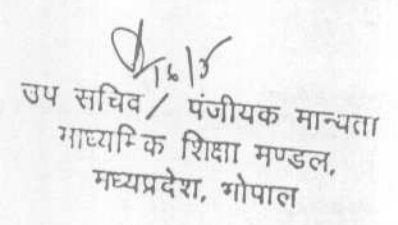 16/5
उप सचिव / पंजीयक मान्यता
माध्यमिक शिक्षा मण्डल,
मध्यप्रदेश, भोपाल